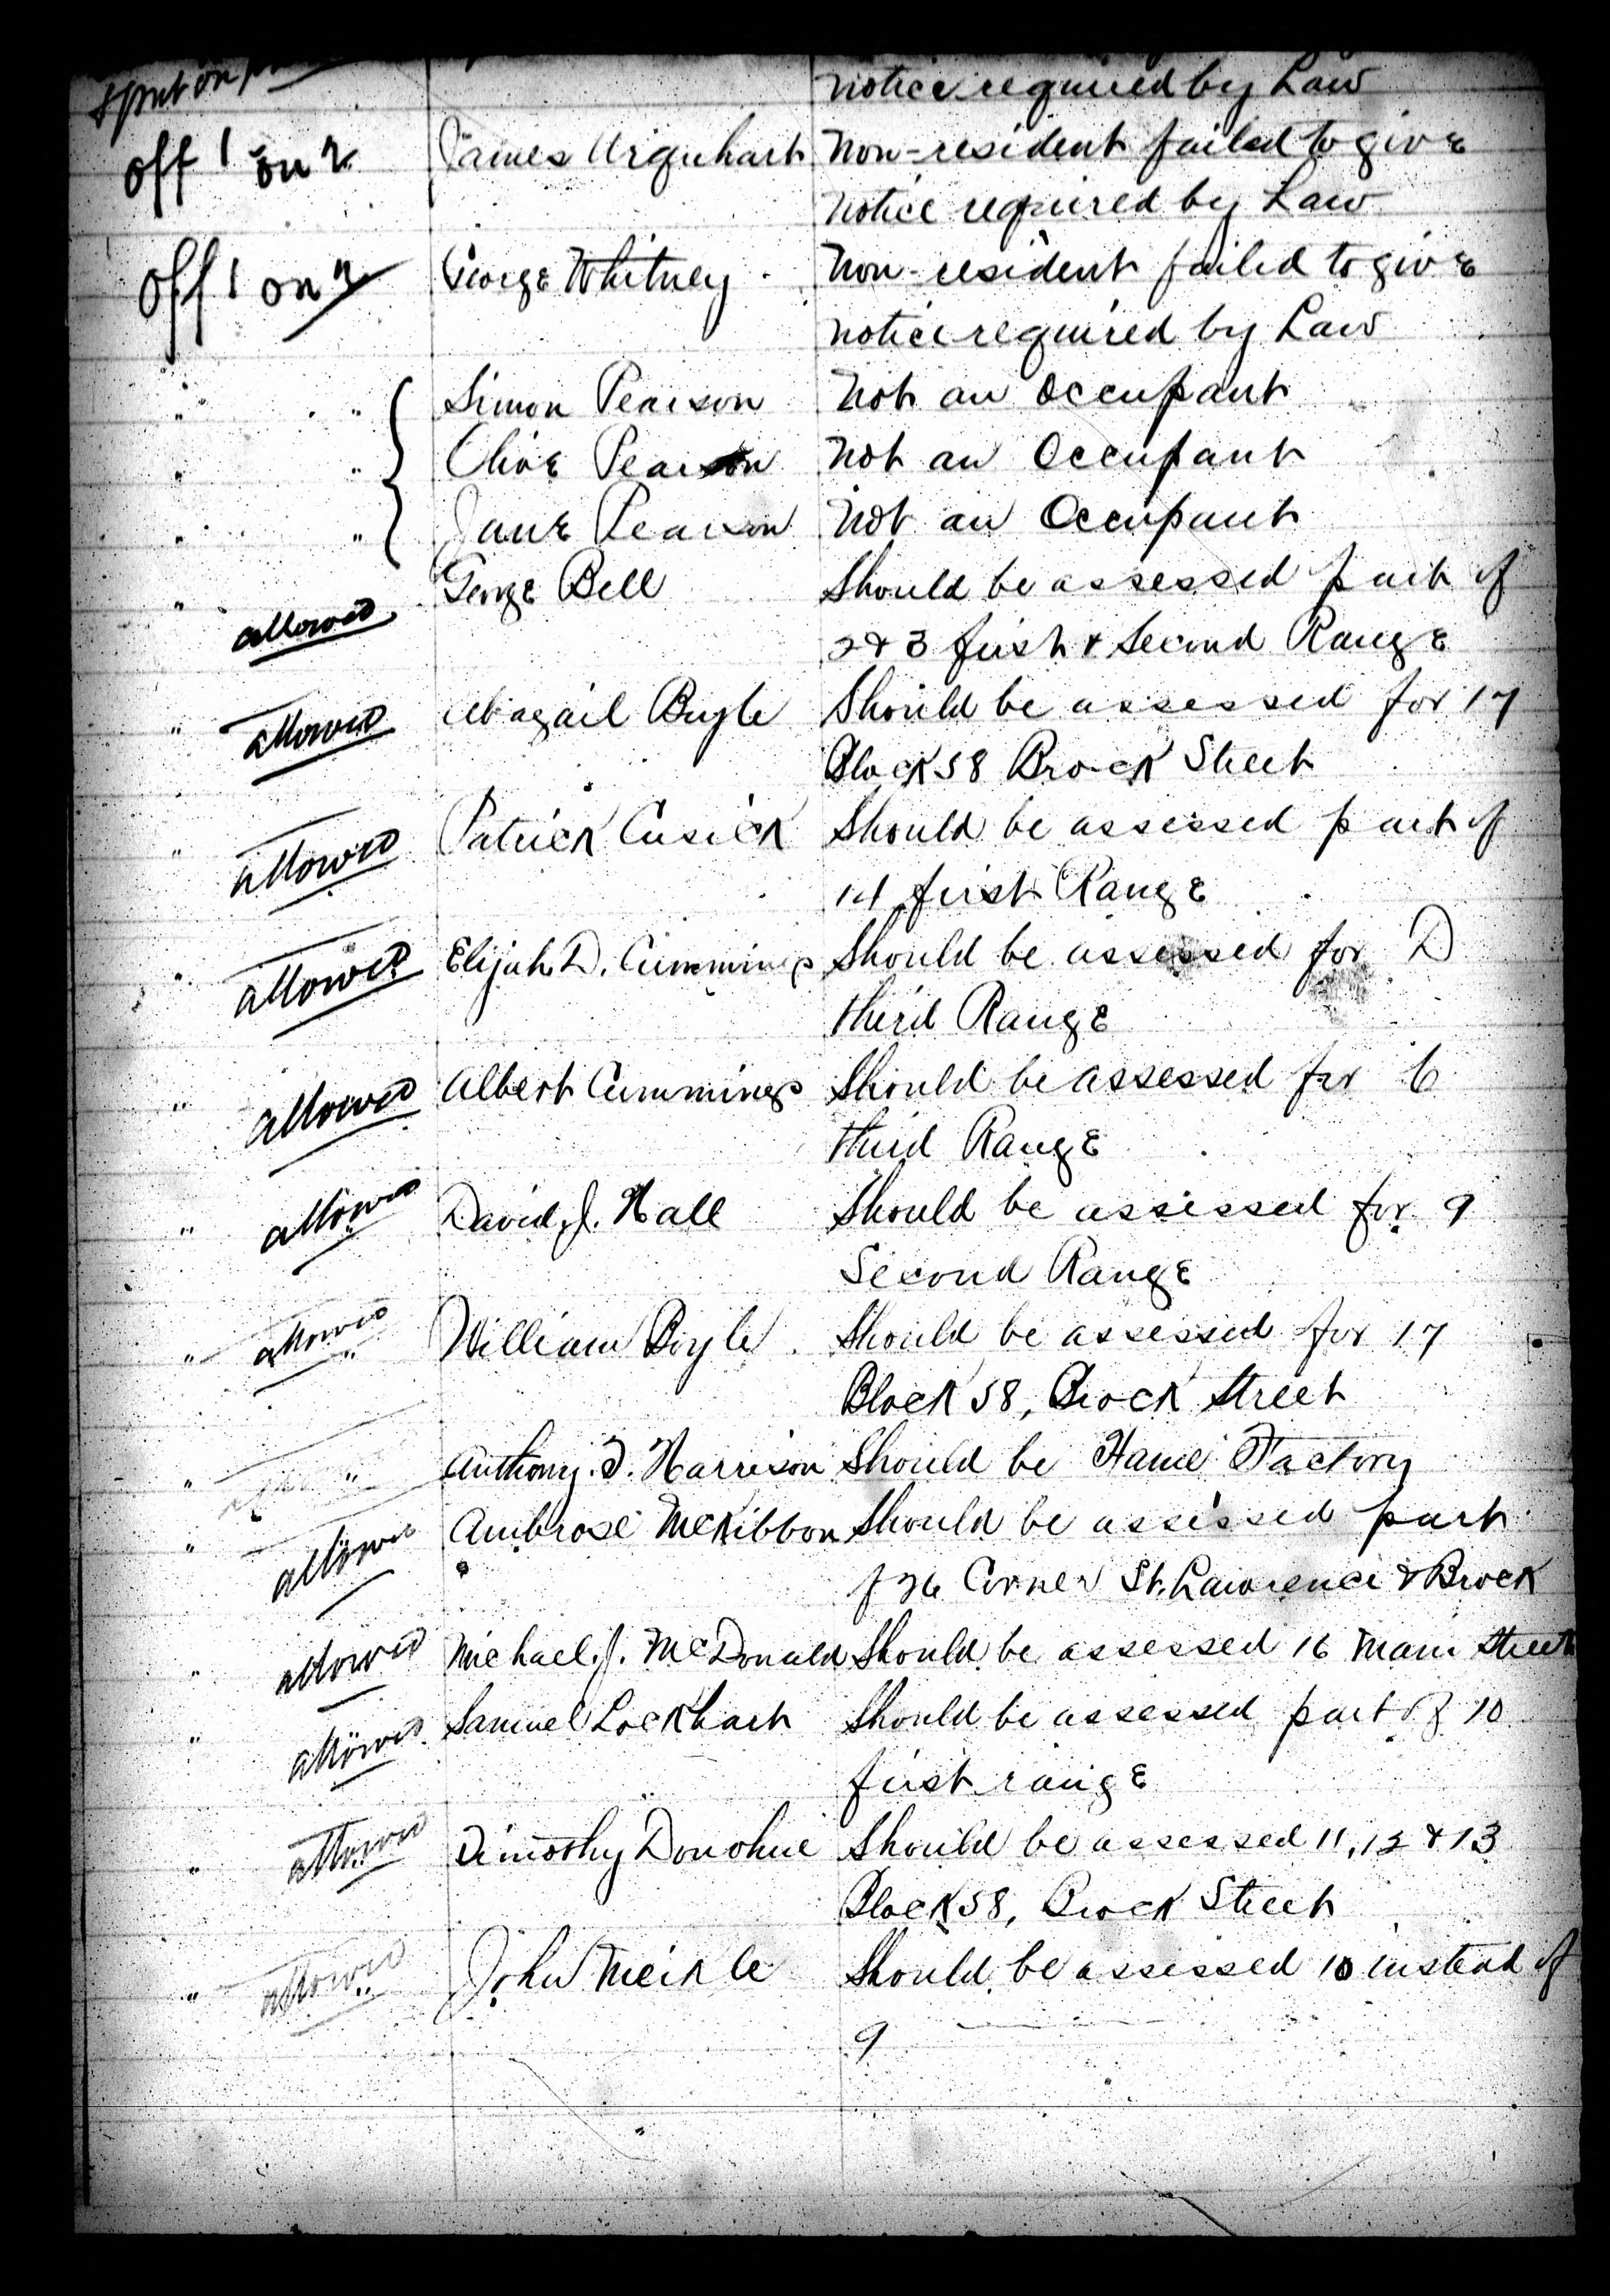 & put on
notice required by Law
off 1 on 2 James Urquhart Non-resident failed to give
notice required by Law
off 1 on 2 George Whitney Non-resident failed to give
notice required by Law
" " Simon Pearson Not an Occupant
" " Olive Pearson Not an Occupant
" " Jane Pearson Not an Occupant
" George Bell Should be assessed part of
allowed 2 & 3 first & Second Range
" allowed Abagail Boyle Should be assessed for 17
" Block 58 Brock Street
" allowed Patrick Cusick Should be assessed part of
14 first Range
" allowed Elijah D. Cummings Should be assessed for D
third Range
" allowed Albert Cummings Should be assessed for 6
third Range
" allowed David J. Hall Should be assessed for 9
Second Range
" allowed " William Boyle Should be assessed for 17
Block 58, Brock Street
" " Anthony. T. Harrison Should be Hame Factory
" allowed Ambrose McKibbon Should be assessed part
of 26 Corner St. Lawrence & Brock
" allowed Michael. J. McDonald Should be assessed 16 Main Street
" allowed Samuel Lockhart Should be assessed part of 10
first range
" allowed Timothy Donohue Should be assessed 11, 12 & 13
Block 58, Brock Street
" allowed John Meikle Should be assessed 10 instead of
9